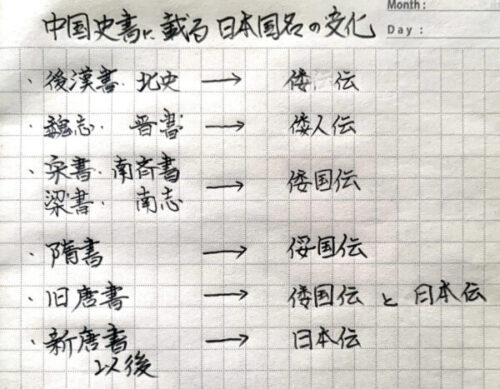 Month:
中国史書に載る日本国名の変化
Day:
・後漢書・北史 → 倭 伝
・魏志・晋書 → 倭人伝
・宋書・南斉書
梁書・南志 → 倭国伝
・隋書 → 俀国伝
・旧唐書 → 倭国伝 と 日本伝
・新唐書 → 日本伝
以後